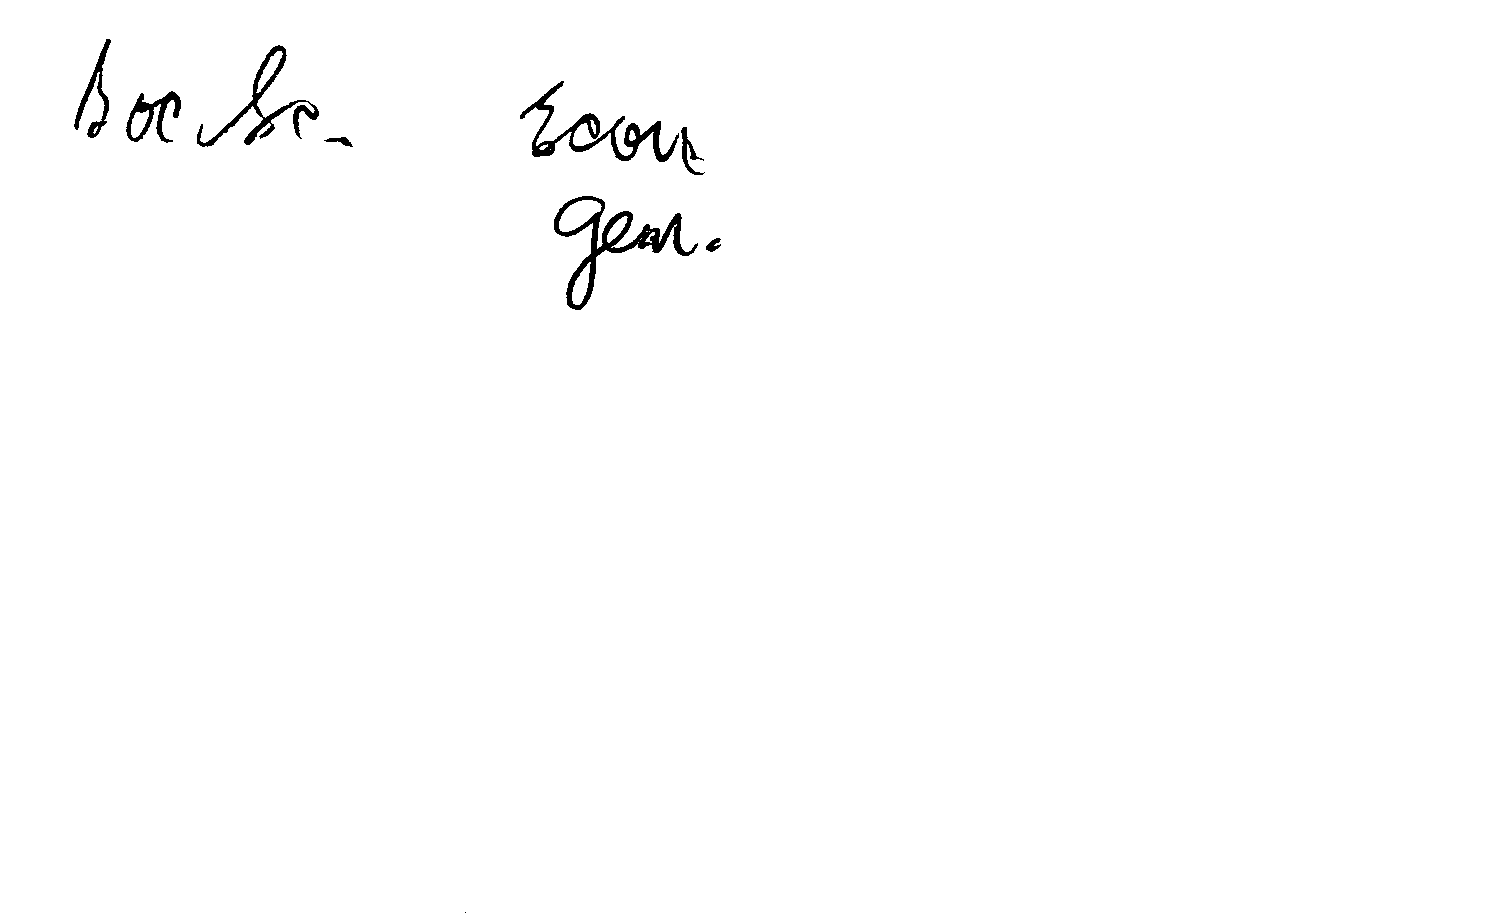 Soc Sc. Econ
Gen.